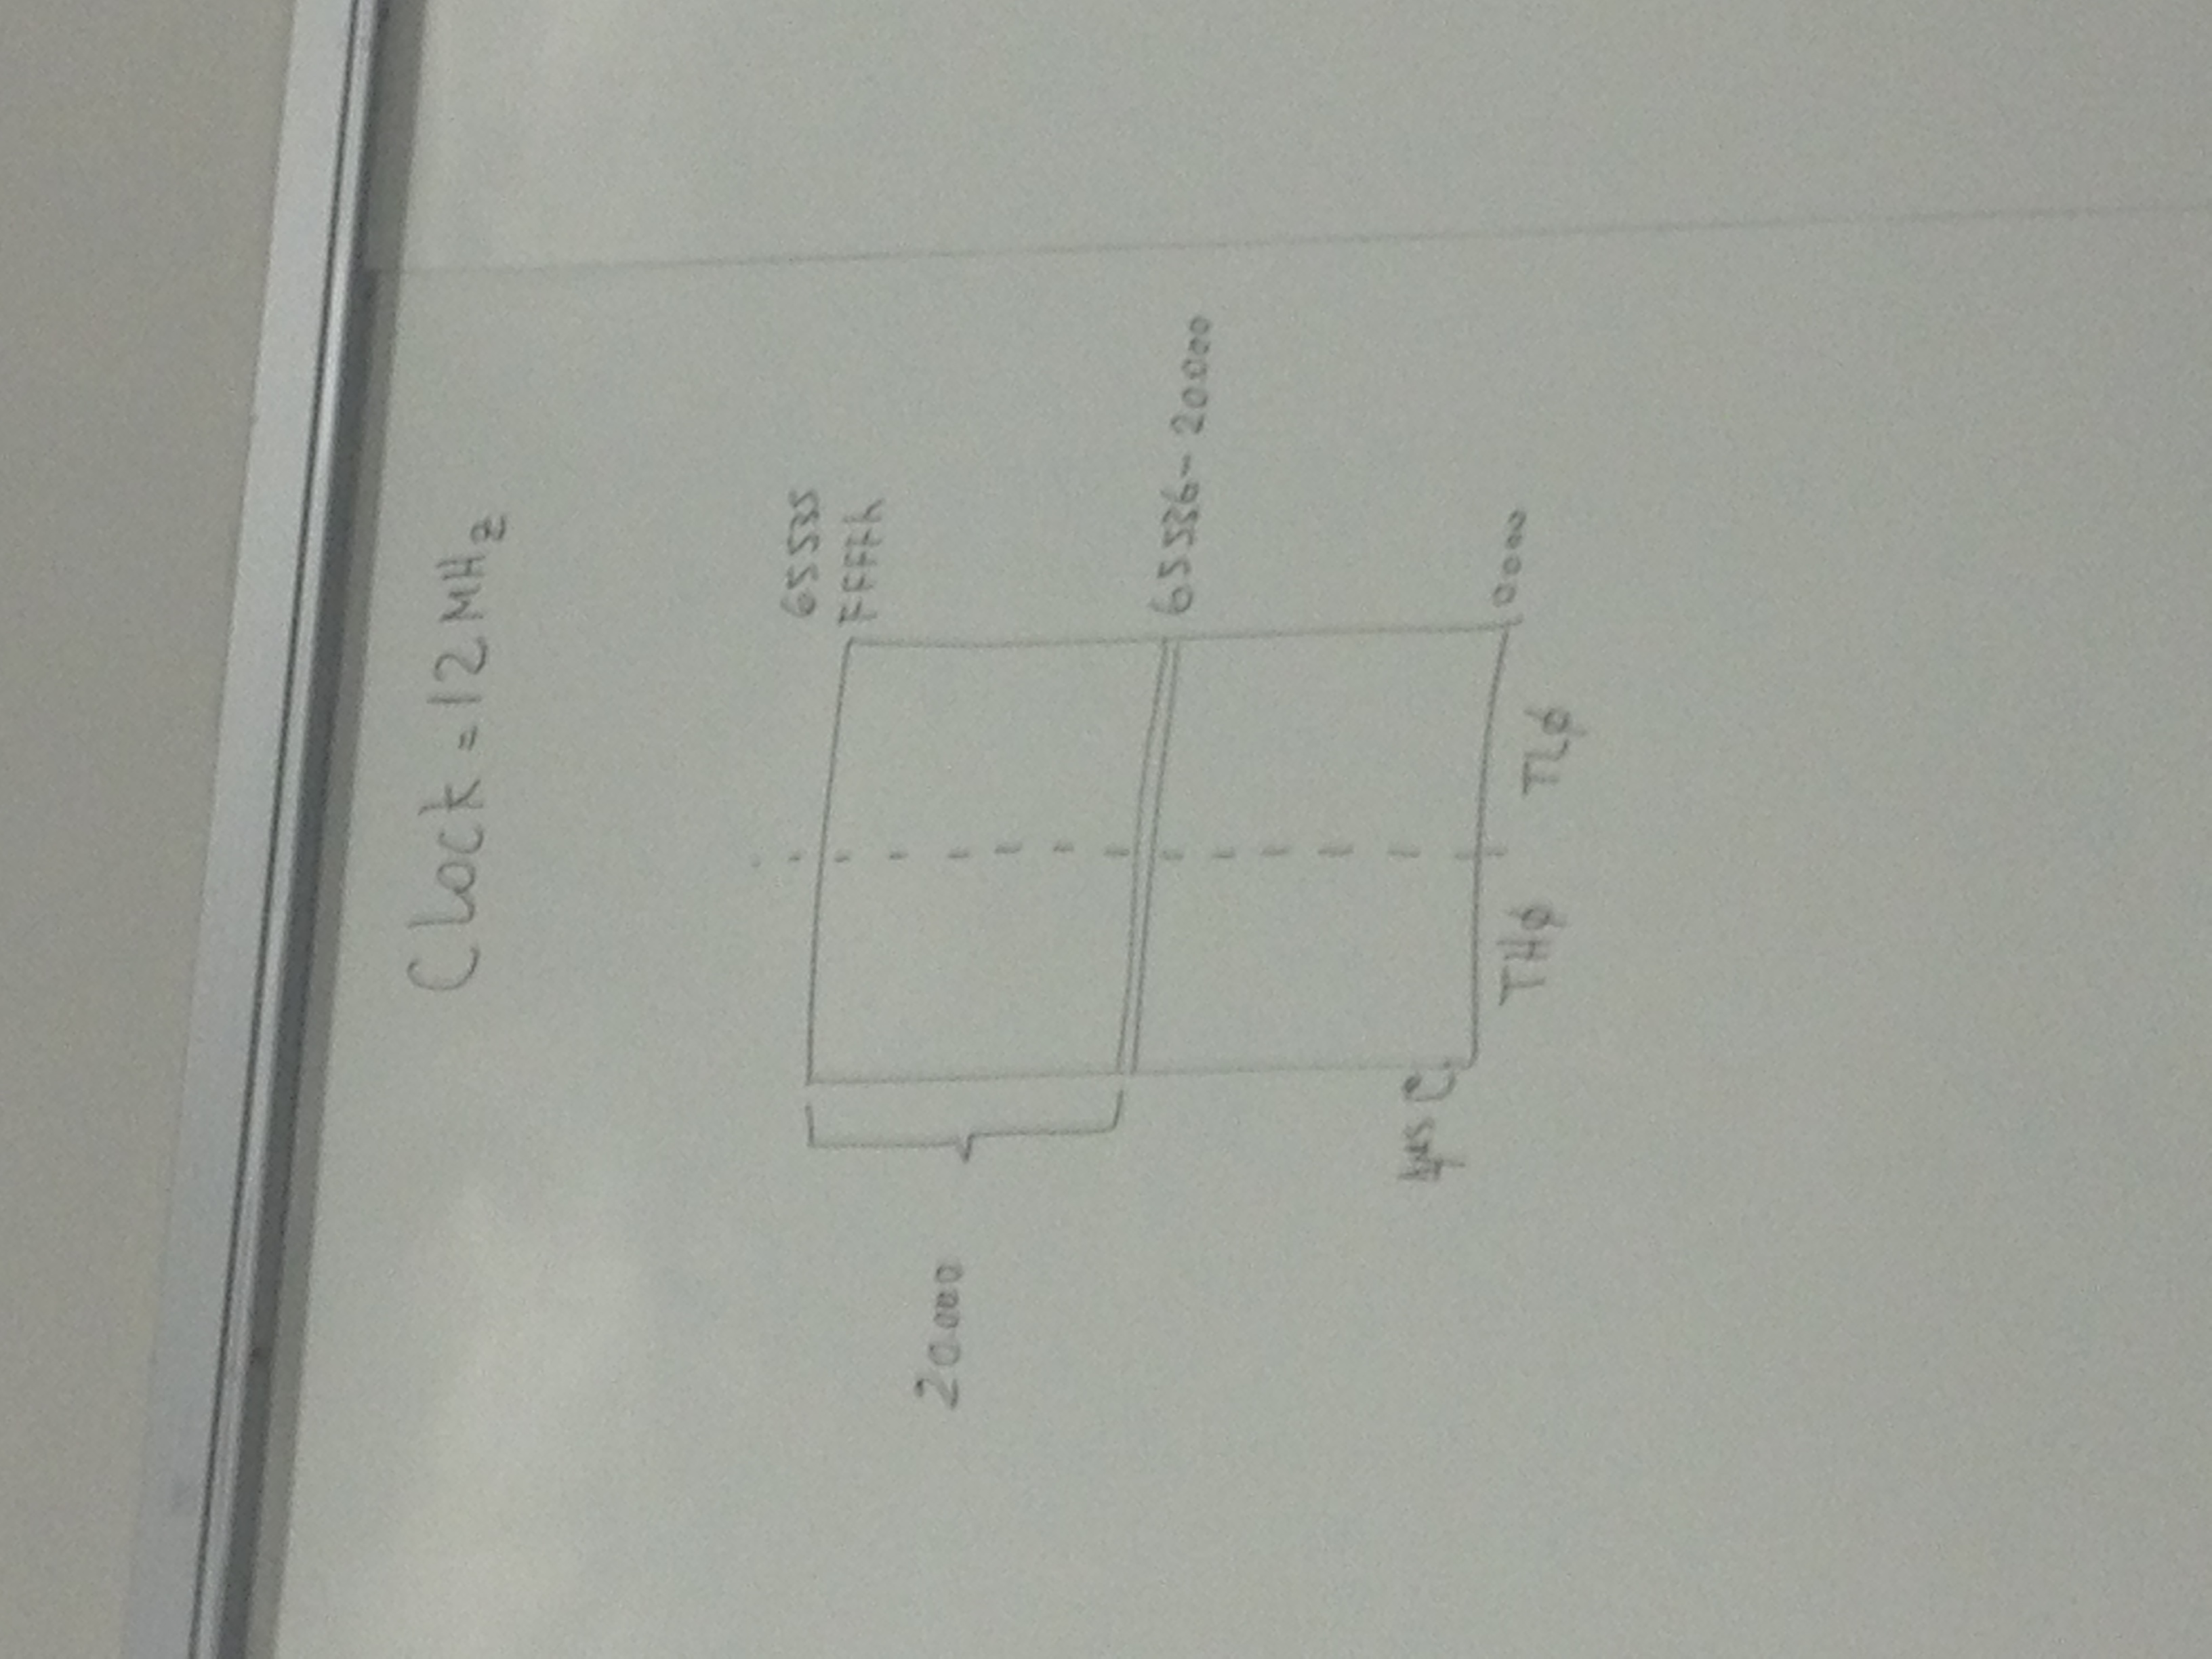 Clock = 12 MHz
65535
FFFFh
20.000
65536 - 20.000
1µs
0000
THØ
TLØ